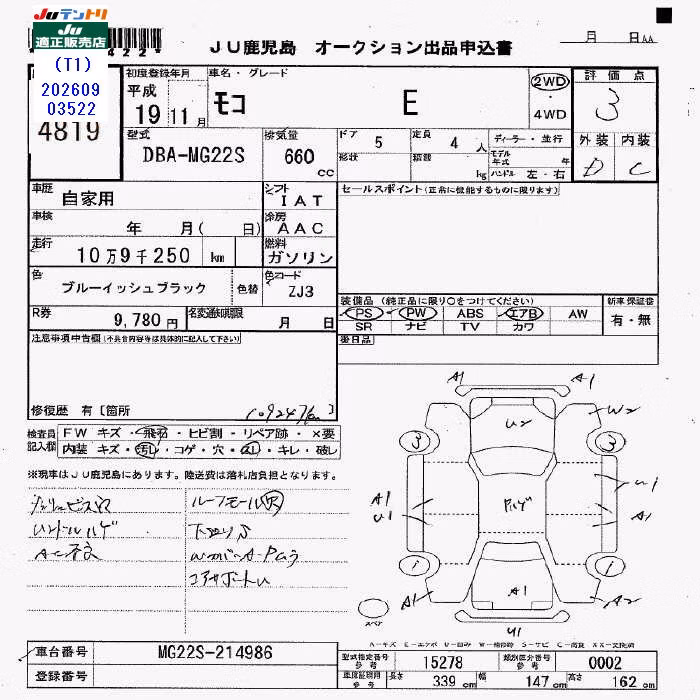 JUテントリ
JU適正販売店
422
JU鹿児島 オークション出品申込書
月 日AA
(T1)
202609
03522
4819
初度登録年月 車名・グレード 評価点
平成 19 11月 モコ E 2WD・4WD 3
型式 排気量 ドア 定員 ディーラー・並行 外装 内装
DBA-MG22S 660cc 5 4人 D C
形状 積載 kg モデル年式 年
ハンドル 左・右
車歴 自家用 シフト IAT セールスポイント(正常に機能するものに限ります)
車検 年 月( 日) 冷房 AAC
走行 10万9千250 km 燃料 ガソリン
色 ブルーイッシュブラック 色替 色コード ZJ3
装備品(純正品に限り○をつけてください) 新車保証書
PS PW ABS エアB AW 有・無
SR ナビ TV カワ
R券 9,780円 名変通知期限 月 日
後日品
注意事項申告欄(不具合内容等は具体的に記入して下さい)
修復歴 有〔箇所 〕
検査員記入欄 FW キズ・飛石・ヒビ割・リペア跡・×要
内装 キズ・汚レ・コゲ・穴・スレ・キレ・破レ
※現車はJU鹿児島にあります。陸送費は落札店負担となります。
ルーフモール
ハンドルハゲ
下廻りS
コアサポート
A1 A1
U2 W2
3 3
A1 U1
U1 A1
1 1
A1 A1 A2
U1
スペア
A-キズ E-エクボ U-凹み W-補修跡 S-サビ C-腐食 XX-交換済
車台番号 MG22S-214986
登録番号
型式指定番号 参考 15278 類別区分番号 参考 0002
車庫証明用 参考 長さ 339cm 幅 147cm 高さ 162cm